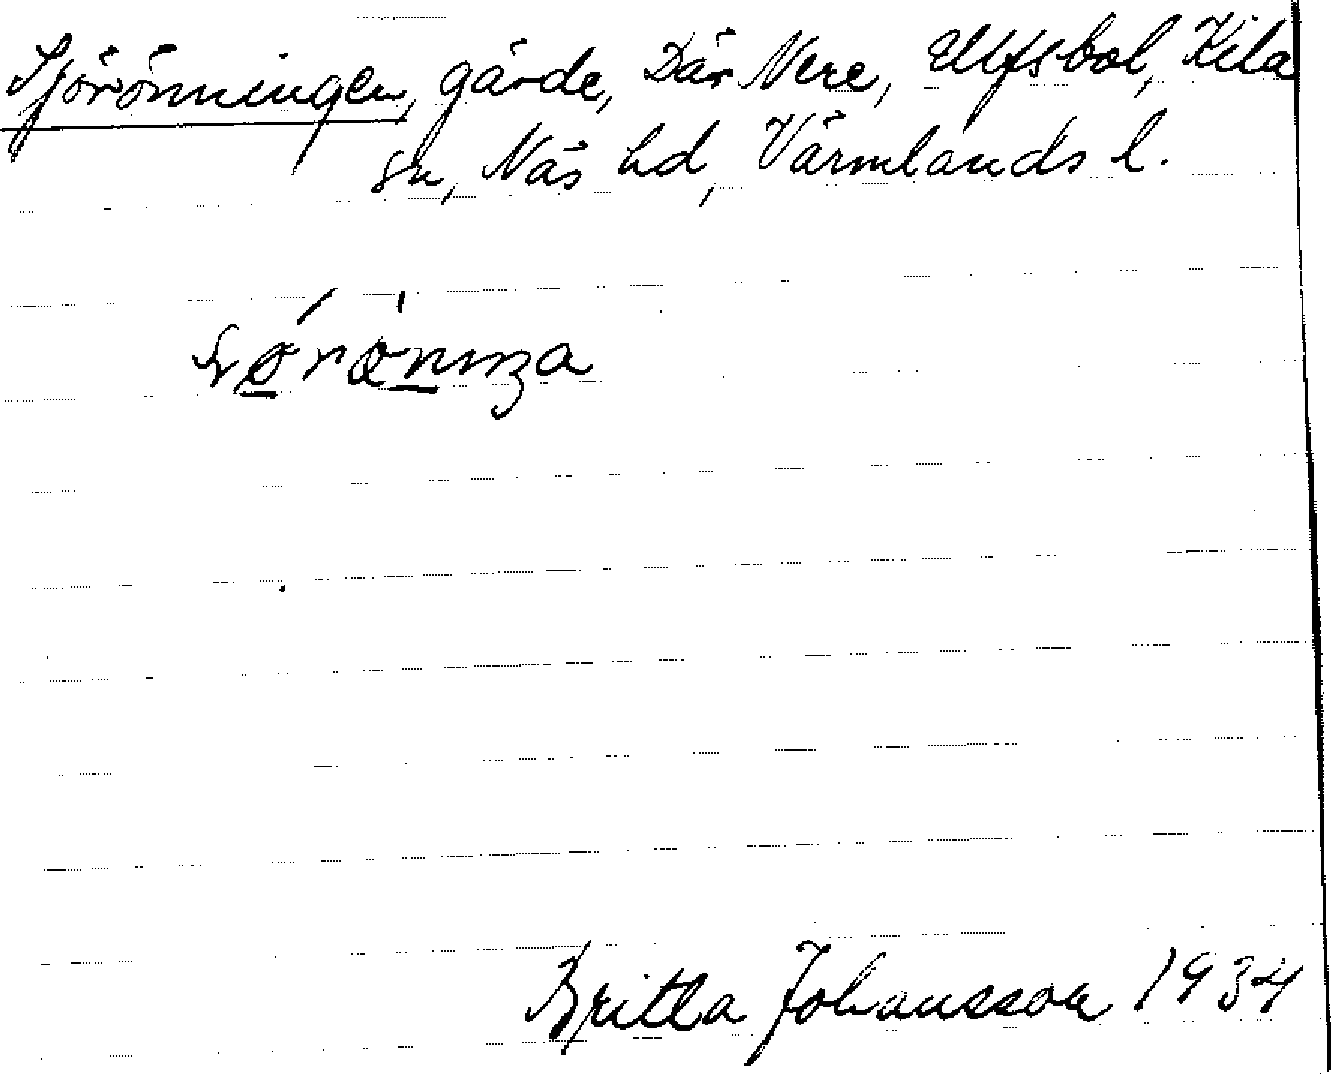 Sjörönningen, gärde, Där Nere, Ulfsbol, Kila
sn, Näs hd, Värmlands l.
Britta Johansson 1934